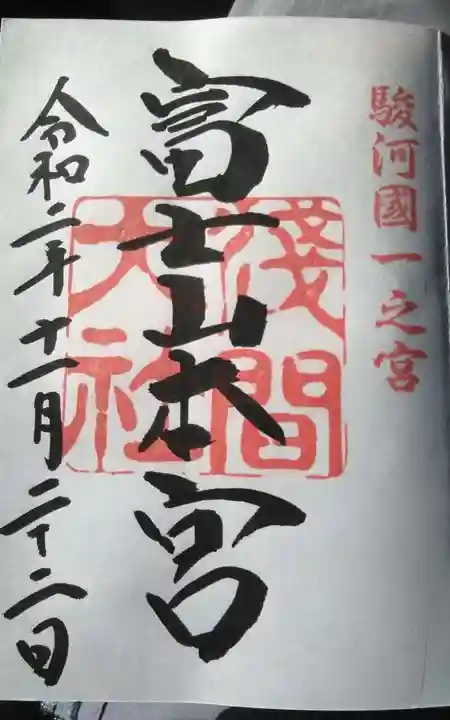 駿河國一之宮
富士山本宮
淺間
大社
令和二年十一月二十二日